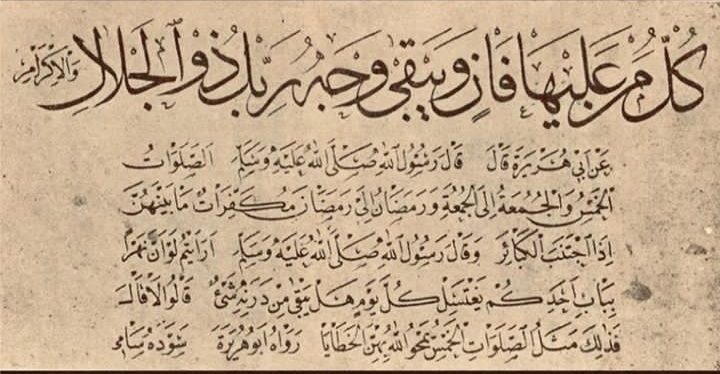 كُلُّ مَنْ عَلَيْهَا فَانٍ وَيَبْقَى وَجْهُ رَبِّكَ ذُو الْجَلَالِ وَالْإِكْرَامِ
عَنْ أَبِي هُرَيْرَةَ قَالَ قَالَ رَسُولُ اللهِ صَلَّى اللهُ عَلَيْهِ وَسَلَّمَ الصَّلَوَاتُ
الْخَمْسُ وَالْجُمُعَةُ إِلَى الْجُمُعَةِ وَرَمَضَانُ إِلَى رَمَضَانَ مُكَفِّرَاتٌ مَا بَيْنَهُنَّ
إِذَا اجْتُنِبَ الْكَبَائِرُ وَقَالَ رَسُولُ اللهِ صَلَّى اللهُ عَلَيْهِ وَسَلَّمَ أَرَأَيْتُمْ لَوْ أَنَّ نَهْرًا
بِبَابِ أَحَدِكُمْ يَغْتَسِلُ كُلَّ يَوْمٍ هَلْ يَبْقَى مِنْ دَرَنِهِ شَيْءٌ قَالُوا لَا قَالَ
فَذَلِكَ مَثَلُ الصَّلَوَاتِ الْخَمْسِ يَمْحُو اللهُ بِهِنَّ الْخَطَايَا رَوَاهُ أَبُو هُرَيْرَةَ سَوَّدَهُ سَامِي